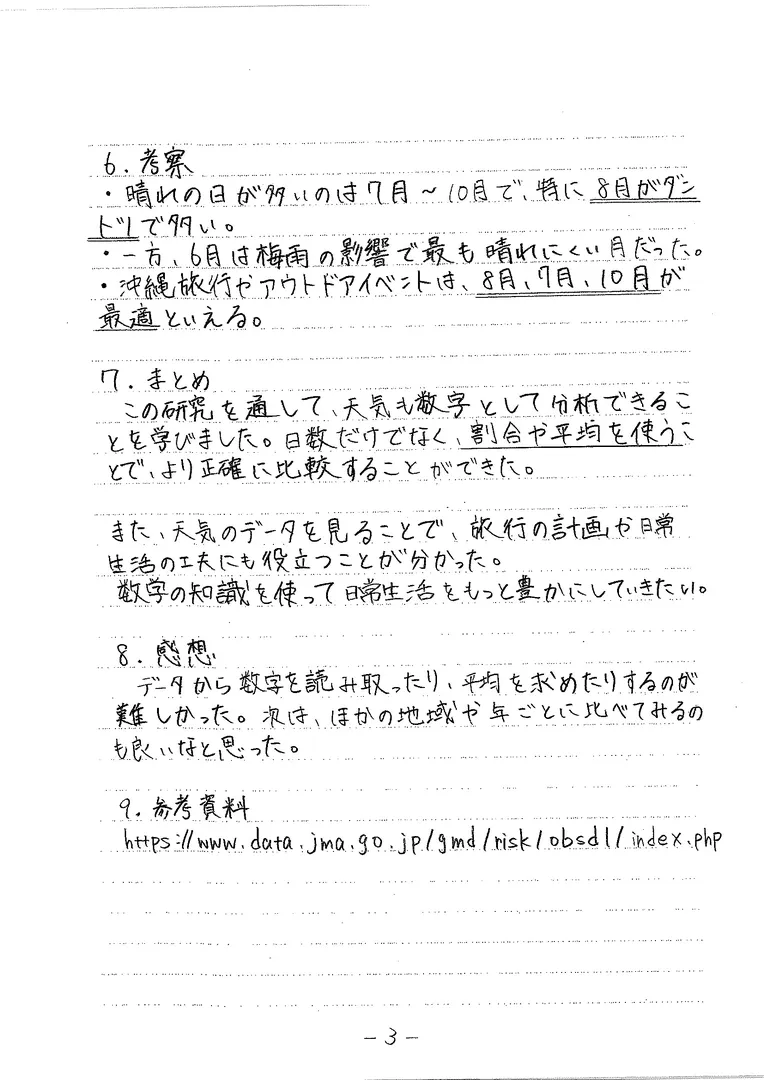 6. 考察
・晴れの日が多いのは7月～10月で、特に8月がダン
トツで多い。
・一方、6月は梅雨の影響で最も晴れにくい月だった。
・沖縄旅行やアウトドアイベントは、8月、7月、10月が
最適といえる。
7. まとめ
この研究を通して、天気も数字として分析できるこ
とを学びました。日数だけでなく、割合や平均を使うこ
とで、より正確に比較することができた。
また、天気のデータを見ることで、旅行の計画や日常
生活の工夫にも役立つことが分かった。
数学の知識を使って日常生活をもっと豊かにしていきたい。
8. 感想
データから数字を読み取ったり、平均を求めたりするのが
難しかった。次は、ほかの地域や年ごとに比べてみるの
も良いなと思った。
9. 参考資料
https://www.data.jma.go.jp/gmd/risk/obsdl/index.php
-3-